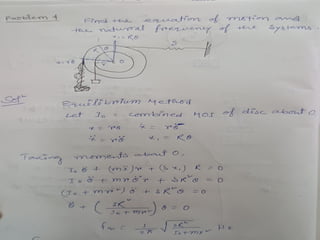 Problem 4 Find the equation of motion and
the natural frequency of the systems.
x₁ = Rθ
S
R θ
r
x = rθ
O
m
Solⁿ Equilibrium Method
Let I₀ = combined MOI of disc about O
x = rθ ẋ = rθ̇
ẍ = rθ̈ x₁ = Rθ
Taking moments about O,
I₀θ̈ + (mẍ)r + (Sx₁) R = 0
I₀θ̈ + mrθ̈r + SR²θ = 0
(I₀ + mr²)θ̈ + SR²θ = 0
θ̈ + (SR² / I₀+mr²) θ = 0
fₙ = 1/2π √(SR² / I₀+mr²) Hz